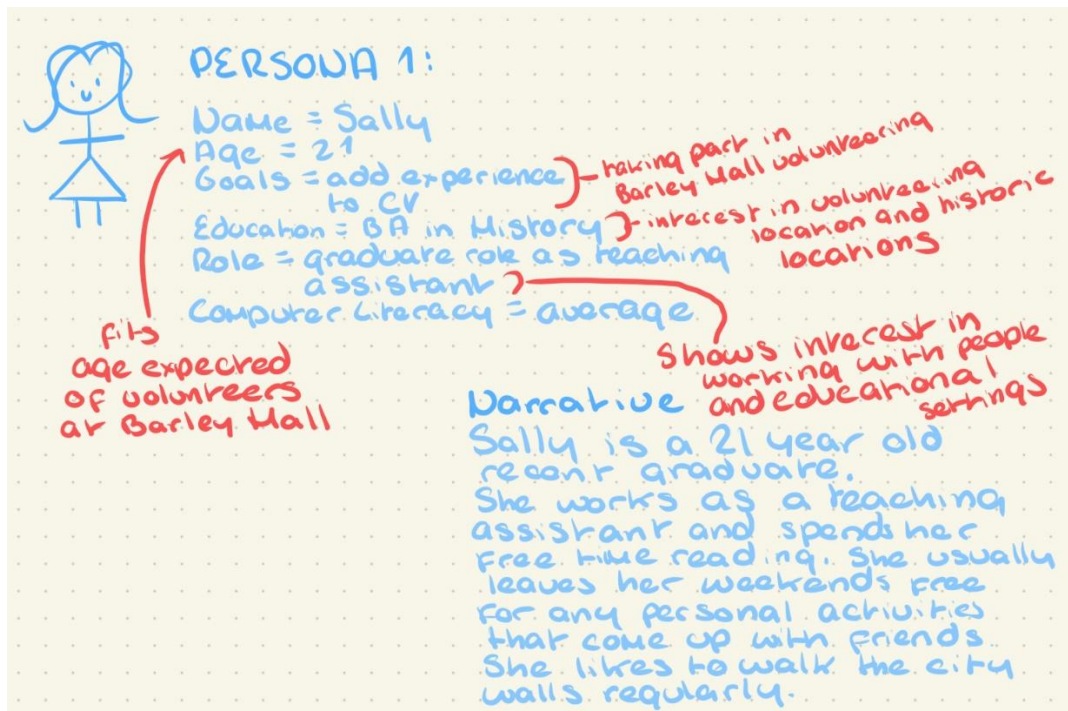 PERSONA 1:
Name = Sally
Age = 21
Goals = add experience
to CV
Education = BA in History
Role = graduate role as teaching
assistant
Computer Literacy = average
taking part in
Barley Hall volunteering
interest in volunteering
location and historic
locations
Shows interest in
working with people
and educational
settings
fits
age expected
of volunteers
at Barley Hall
Narrative
Sally is a 21 year old
recent graduate.
She works as a teaching
assistant and spends her
free time reading. She usually
leaves her weekends free
for any personal activities
that come up with friends.
She likes to walk the city
walls regularly.